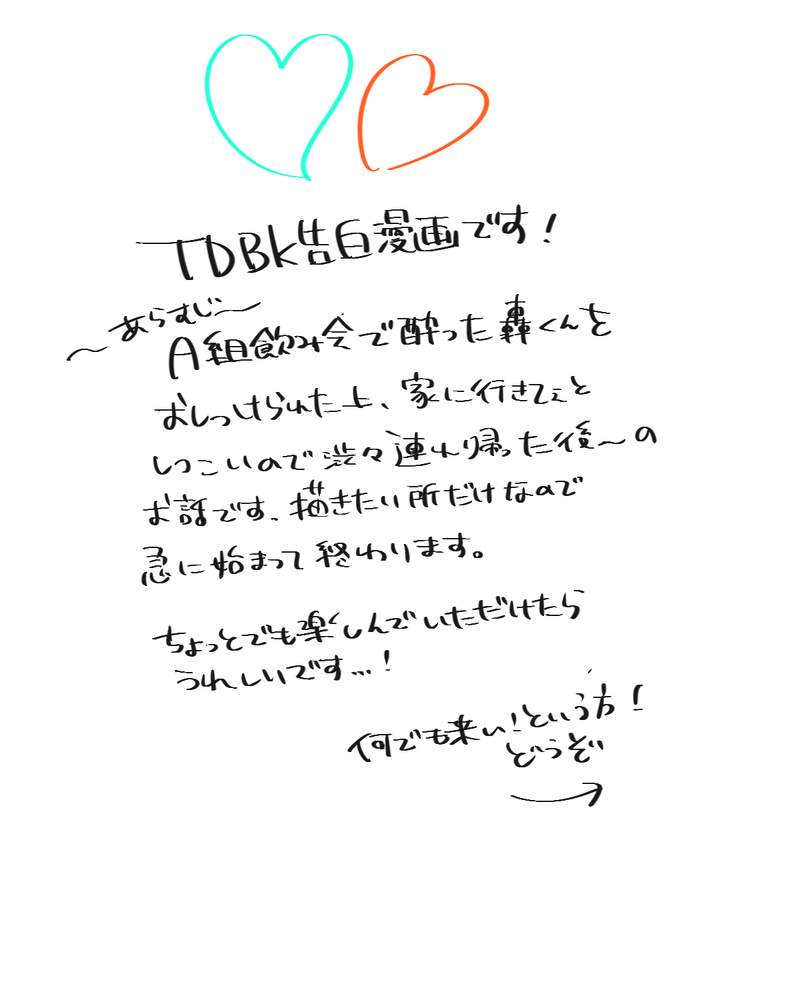 TDBK告白漫画です!
〜あらすじ〜
A組飲み会で酔った轟くんを
おしつけられた上、家に行きてぇと
しつこいので渋々連れ帰った後〜の
お話です、描きたい所だけなので
急に始まって終わります。
ちょっとでも楽しんでいただけたら
うれしいです...!
何でも来い!という方!
どうぞ